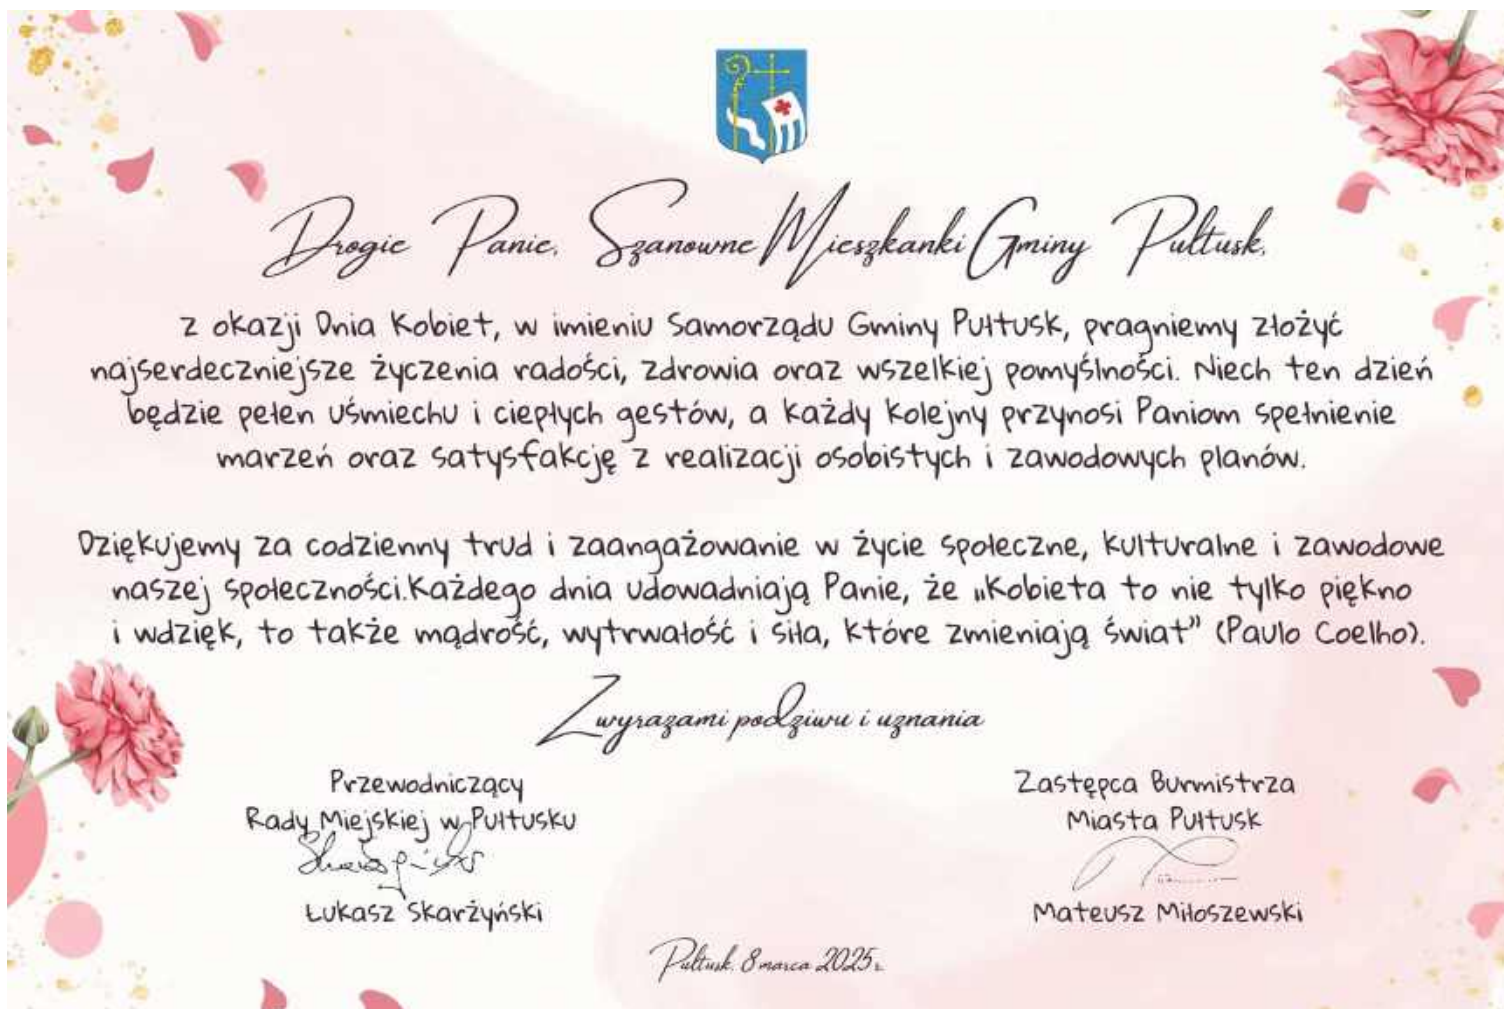 Drogie Panie, Szanowne Mieszkanki Gminy Pułtusk,
z okazji Dnia Kobiet, w imieniu Samorządu Gminy Pułtusk, pragniemy złożyć
najserdeczniejsze życzenia radości, zdrowia oraz wszelkiej pomyślności. Niech ten dzień
będzie pełen uśmiechu i ciepłych gestów, a każdy kolejny przynosi Paniom spełnienie
marzeń oraz satysfakcję z realizacji osobistych i zawodowych planów.
Dziękujemy za codzienny trud i zaangażowanie w życie społeczne, kulturalne i zawodowe
naszej społeczności.Każdego dnia udowadniają Panie, że „Kobieta to nie tylko piękno
i wdzięk, to także mądrość, wytrwałość i siła, które zmieniają świat” (Paulo Coelho).
Z wyrazami podziwu i uznania
Przewodniczący
Rady Miejskiej w Pułtusku
Łukasz Skarżyński
Zastępca Burmistrza
Miasta Pułtusk
Mateusz Miłoszewski
Pułtusk, 8 marca 2025 r.